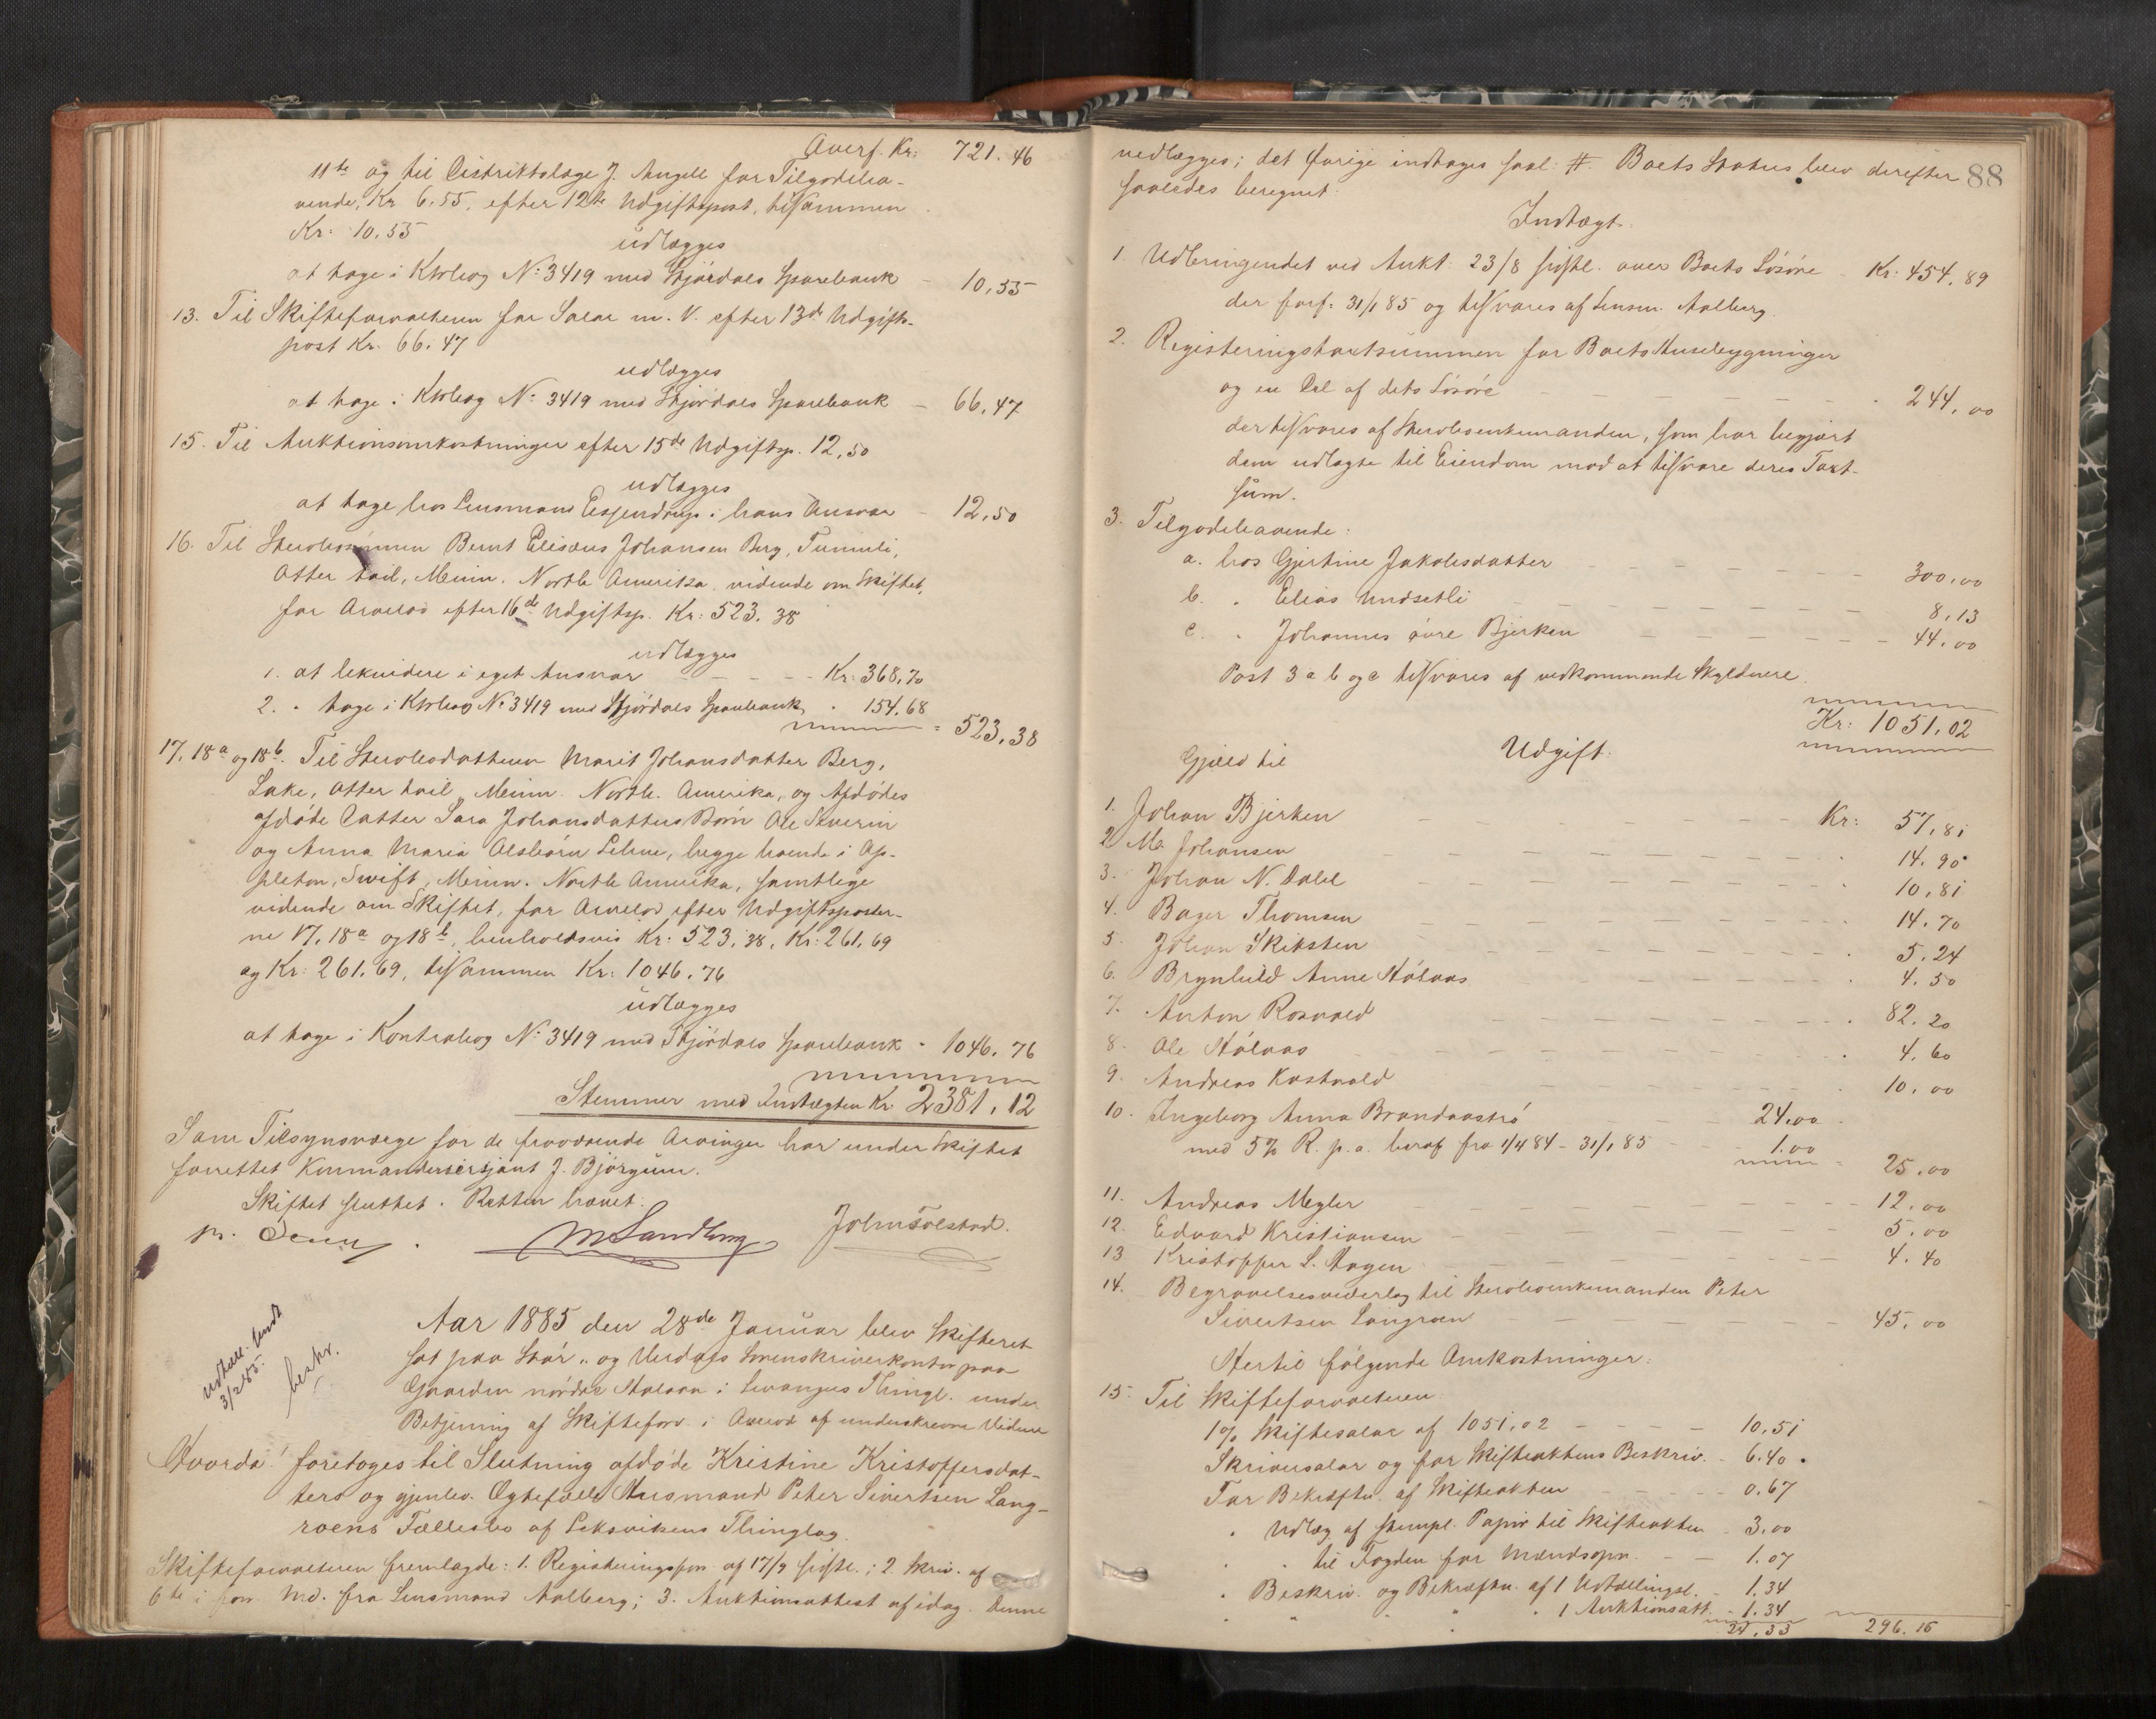 Overf. Kr: 721.46
11te og til Distriktslæge J. Angell for Tilgodeha-
vende, Kr 6.55, efter 12te Udgiftspost, tilsammen
Kr: 10.55
udlægges
at tage i Ktrbog No 3419 med Stjørdals Sparebank – 10,55
13. Til Skifteforvalteren for Salar m. V. efter 13de Udgifts-
post Kr. 66.47
udlægges
at tage i Ktrbog No 3419 med Stjørdals Sparebank – 66,47
15. Til Auktionsomkostninger efter 15de Udgiftsp. 12,50
udlægges
at tage hos Lensmand Essendrup i hans Ansvar – 12,50
16. Til Stervbosønnen Bernt Elisæus Johansen Berg, Tumuli,
Otter tail, Minn. North Amerika vidende om Skiftet,
for Arvelod efter 16de Udgiftsp. Kr: 523.38
udlægges
1. at lekvidere i eget Ansvar – – – – Kr: 368,70
2. " tage i Ktrbog No 3419 med Stjørdals Sparebank " 154.68
= 523,38
17, 18a og 18b. Til Stervbodatteren Marit Johansdatter Berg,
Lake, Otter tail, Minn. North. Amerika, og Afdødes
afdøde Datter Sara Johansdatters Børn Ole Severin
og Anna Maria Olsbørn Lehne, begge boende i Ap-
pleton, Swift, Minn. North Amerika, samtlige
vidende om Skiftet, for Arvelod efter Udgiftsposter-
ne 17, 18a og 18b, henholdsvis Kr: 523,38, Kr: 261,69
og Kr: 261,69, tilsammen Kr: 1046,76
udlægges
at tage i Kontrabog No 3419 med Stjørdals Sparebank " 1046.76
Stemmer med Indtægten Kr 2381,12
Som Tilsynsværge for de fraværende Arvinger har under Skiftet
forrettet Kommandersersjant J. Bjørgum.
Skiftet sluttet. Retten hævet.
M Sandberg John Tolstad.
Aar 1885 den 28de Januar blev Skifteret
sat paa Stør- og Verdals Sorenskriverkontor paa
Gaarden nordre Halsan i Levangers Thingl. under
Betjening af Skifteforv. i Overvær af underskrevne Vidner
udtæll. sendt
3/2 85.
beskr.
Hvorda! foretoges til Slutning afdøde Kristine Kristoffersdat-
ters og gjenlev. Ægtefælle Husmand Peter Sivertsen Lang-
roens Fællesbo af Leksvikens Thinglag.
Skifteforvalteren fremlagde: 1. Registeringsforr. af 17/7 sidstl.; 2. Skriv. af
6te i forr. Md. fra Lensmand Aalberg; 3. Auktionsattest af idag. Denne
88
vedlægges; det øvrige indtages saal. #. Boets Status blev derefter
saaledes beregnet:
Indtægt.
1. Udbringendet ved Aukt. 23/8 sidstl. over Boets Løsøre – Kr: 454,89
der forf: 31/1 85 og tilsvares af Lensm. Aalberg.
2. Registeringstaxtsummen for Boets Husebygninger
og en Del af dets Løsøre – – – 244,00
der tilsvares af Stervboenkemanden, som har begjært
dem udlagte til Eiendom mod at tilsvare deres Taxt-
sum.
3. Tilgodehavende:
a. hos Gjertine Jakobsdatter – – – 300,00
b. " Elias Undsetli – – – 8,13
c. " Johannes øvre Bjerken – – – 44,00
Post 3 a b og c tilsvares af vedkommende Skyldnere.
Kr: 1051,02
Udgift.
Gjæld til
1. Johan Bjerken – – – Kr: 57,81
2 M. Johansen – – – 14.90
3. Johan N. Dahl – – – 10,81
4. Bager Thomsen – – – 14.70
5. Johan Skiksten – – – 5.24
6. Brynhild Anne Hålaas – – – 4.50
7. Anton Rosvold – – – 82.20
8. Ole Hålaas – – – 4.60
9. Andreas Kastvold – – – 10.00
10. Ingeborg Anna Brandaastrø – 24,00
med 5% R. p. a. heraf fra 1/4 84 – 31/1 85 – 1.00
25,00
11. Andreas Megler – – – 12.00
12. Edvard Kristiansen – – – 5.00
13 Kristoffer L. Hagen – – – 4.40
14. Begravelsesvederlag til Stervboenkemanden Peter
Sivertsen Langroen – – – 45,00
Hertil følgende Omkostninger:
15. Til Skifteforvalteren
1% Skiftesalar af 1051,02 – – – 10,51
Skriversalar og for Skifteaktens Beskriv. – 6.40
For Bekræftn. af Skifteakten – – – 0.67
" Udlæg af stempl. Papir til Skifteakten – 3,00
" " til Fogden for Mændsopn. – – 1.07
" Beskriv. og Bekræftn. af 1 Udtællingsl. – 1.34
" " " " " 1 Auktionsatt. – 1.34
24,33 296.16